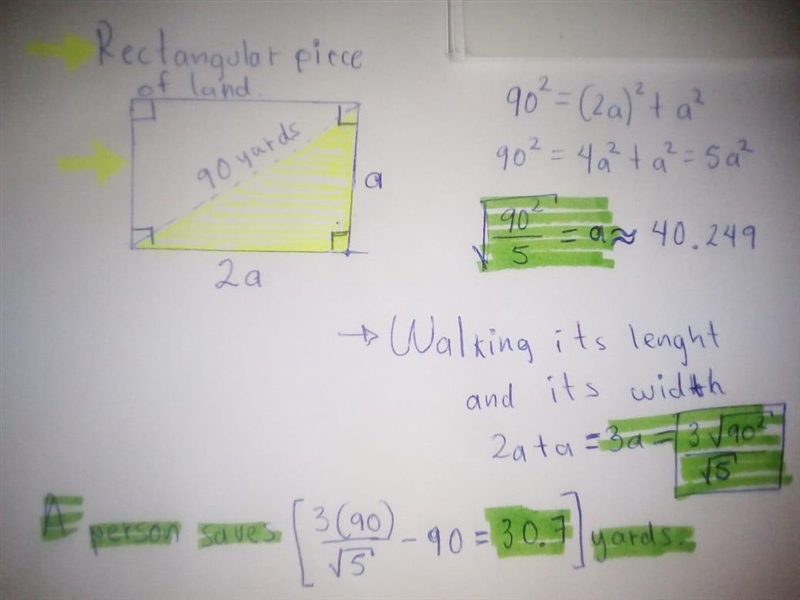 Rectangular piece
of land.
90 yards
a
2a
90² = (2a)² + a²
90² = 4a² + a² = 5a²
√(90²/5) = a ≈ 40.249
→ Walking its lenght
and its width
2a+a = 3a = 3√90²/√5
A person saves [3(90)/√5 - 90 = 30.7] yards.